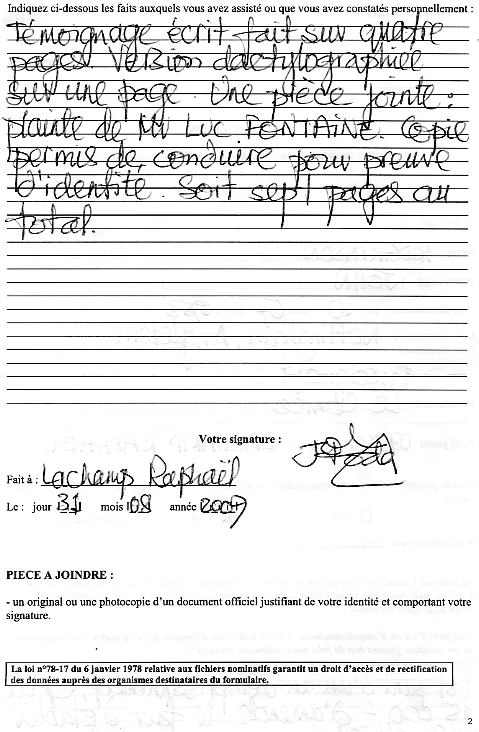 Indiquez ci-dessous les faits auxquels vous avez assisté ou que vous avez constatés personnellement :
Témoignage écrit fait sur quatre
pages. Version dactylographiée
sur une page. Une pièce jointe :
plainte de Mr Luc FONTAINE. Copie
permis de conduire pour preuve
d'identité. Soit sept pages au
total.
Votre signature :
Fait à : Lachamp Raphaël
Le : jour 31 mois 08 année 2009
PIECE A JOINDRE :
- un original ou une photocopie d'un document officiel justifiant de votre identité et comportant votre
signature.
La loi n°78-17 du 6 janvier 1978 relative aux fichiers nominatifs garantit un droit d'accès et de rectification
des données auprès des organismes destinataires du formulaire.
2